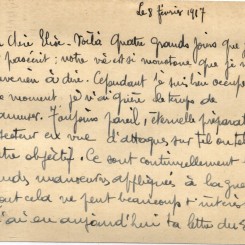 Le 8 février 1917
Chère Élise - Voilà quatre grands jours que je
; notre vie est si monotone que je n'
à dire. Cependant je suis bien occupé
ce moment, je n'ai guère de temps de
. Toujours pareil, éternelle préparat
secteur en vue d'attaques sur tel ou tel
tre objectif. Ce sont continuellement
nds manœuvres appliqués à la gue
out cela ne peut beaucoup t'intéres
J'ai eu aujourd'hui ta lettre du 2